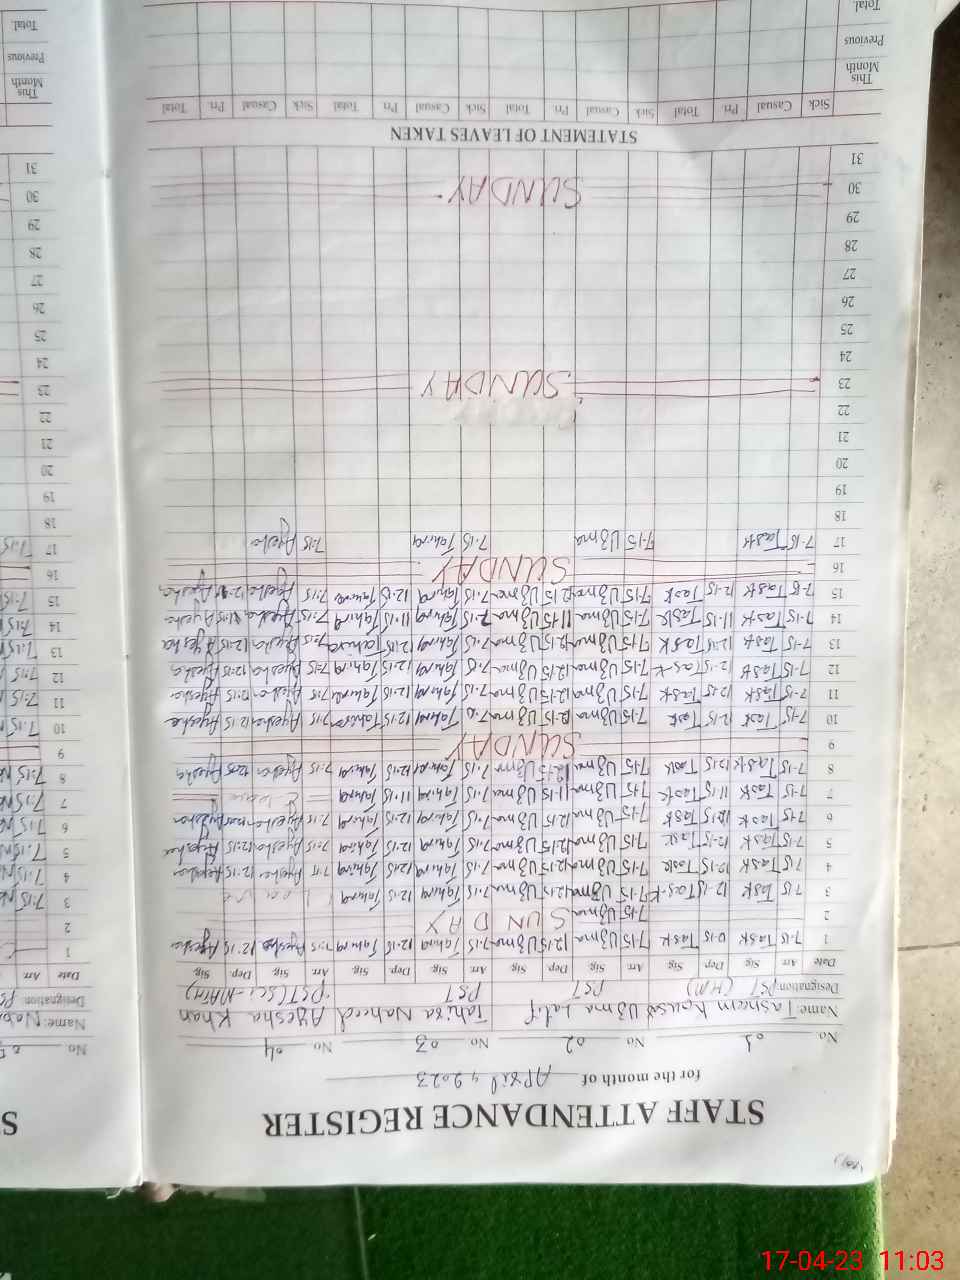 STAFF ATTENDANCE REGISTER
for the month of April, 2023
No 01 No 02 No 03 No 04
Name: Tasneem Kousar Uzma Latif Tahira Naheed Ayesha Khan
Designation PST (H/M) PST PST PST (Sci-Math)
Date Arr Sig. Dep. Sig. Arr. Sig. Dep. Sig. Arr. Sig. Dep. Sig. Arr Sig. Dep. Sig.
1 7-15 Task 12-15 Task 7-15 Uzma 12-15 Uzma 7-15 Tahira 12-15 Tahira 7:15 Ayesha 12:15 Ayesha
2 SUNDAY
3 7-15 Task 12-15 Task 7-15 Uzma 12-15 Uzma 7-15 Tahira 12-15 Tahira
4 7-15 Task 12-15 Task 7-15 Uzma 12-15 Uzma 7-15 Tahira 12-15 Tahira 7:15 Ayesha 12:15 Ayesha
5 7-15 Task 12-15 Task 7-15 Uzma 12-15 Uzma 7-15 Tahira 12-15 Tahira 7:15 Ayesha 12:15 Ayesha
6 7-15 Task 12-15 Task 7-15 Uzma 12-15 Uzma 7-15 Tahira 12-15 Tahira 7:15 Ayesha Ayesha
7 7-15 Task 11-15 Task 7-15 Uzma 11-15 Uzma 7-15 Tahira 11-15 Tahira
8 7-15 Task 12-15 Task 7-15 Uzma 12-15 Uzma 7-15 Tahira 12-15 Tahira 7:15 Ayesha Ayesha
9 SUNDAY
10 7-15 Task 12-15 Task 7-15 Uzma 12-15 Uzma Tahira 12-15 Tahira 7:15 Ayesha 12:15 Ayesha
11 7-15 Task 12-15 Task 7-15 Uzma 12-15 Uzma 7-15 Tahira 12-15 Tahira 7:15 Ayesha 12:15 Ayesha
12 7-15 Task 12-15 Task 7-15 Uzma 12-15 Uzma 7-15 Tahira 12-15 Tahira 7:15 Ayesha 12:15 Ayesha
13 7-15 Task 12-15 Task 7-15 Uzma 12-15 Uzma 7-15 Tahira 12-15 Tahira 7:15 Ayesha 12:15 Ayesha
14 7-15 Task 11-15 Task 7-15 Uzma 11-15 Uzma 7-15 Tahira 11-15 Tahira 7:15 Ayesha 11:15 Ayesha
15 7-15 Task 12-15 Task 7-15 Uzma 12-15 Uzma 7-15 Tahira 12-15 Tahira 7:15 Ayesha Ayesha
16 SUNDAY
17 7-15 Task 7-15 Uzma 7-15 Tahira 7:15 Ayesha
18
19
20
21
22
23 SUNDAY
24
25
26
27
28
29
30 SUNDAY
31
STATEMENT OF LEAVES TAKEN
Sick Casual Pri. Total Sick Casual Pri. Total Sick Casual Pri. Total Sick Casual Pri. Total
This Month
Previous
Total
No
Name:
Designation
Date Arr
1
2
3 7:15
4 7:15
5 7:15
6 7:15
7 7:15
8 7:15
9
10 7:15
11 7:15
12 7:15
13 7:15
14 7:15
15 7:15
16
17 7:15
18
19
20
21
22
23
24
25
26
27
28
29
30
31
This Month
Previous
Total
17-04-23 11:03